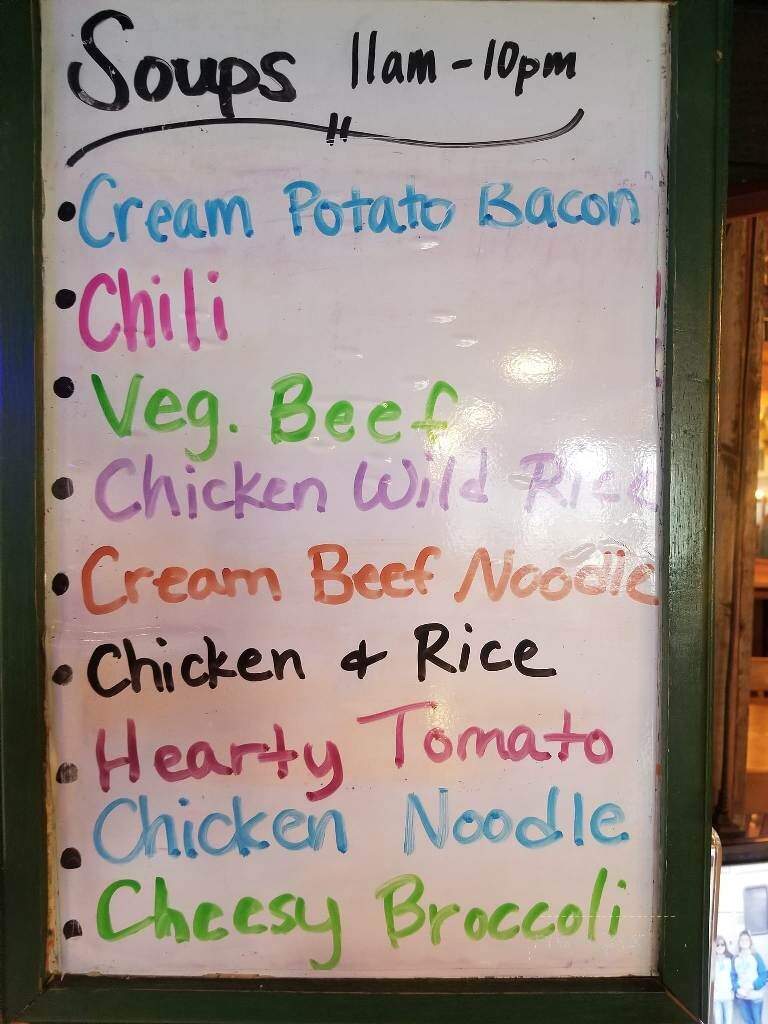 Soups 11am - 10pm
• Cream Potato Bacon
• Chili
• Veg. Beef
• Chicken Wild Rice
• Cream Beef Noodle
• Chicken & Rice
• Hearty Tomato
• Chicken Noodle
• Cheesy Broccoli